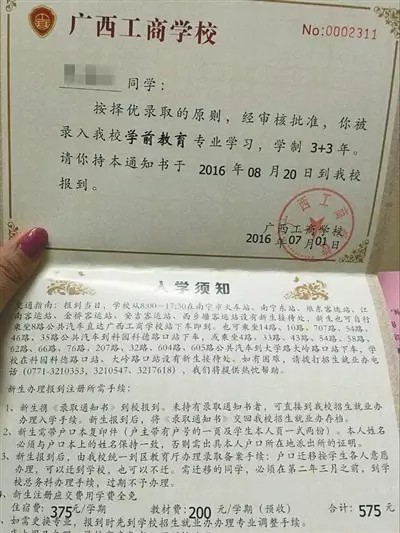 广西工商学校
No:0002311
同学：
按择优录取的原则，经审核批准，你被
录入我校学前教育专业学习，学制 3+3 年。
请你持本通知书于 2016 年 08 月 20 日到我校
报到。
广西工商学校
2016 年 07 月 01 日
入学须知
交通指南：报到当日，学校从8:00—17:30在南宁市火车站、南宁东站、埌东客运站、江
南客运站、金桥客运站、安吉客运站、西乡塘客运站设有新生接待处，新生也可自行
乘坐8路公共汽车直达广西工商学校站下车即到。也可乘坐14路、10路、707路、54路、
46路、35路公共汽车到科园科德路口站下车，或乘坐4路、33路、43路、54路、58路、
62路、66路、76路、207路、32路、604路、605路公共汽车到大学路大岭路口站下车，学
校在科园科德路口站、大岭路口站设有新生接待处。如有困难，请拨打招生就业办电
话（0771-3210353、3210547、3217618），我们将提供热忱帮助。
新生办理报到注册所需手续：
1、新生将《录取通知书》到校报到。未持有录取通知书者，可直接到我校招生就业办
办理入学手续。新生报到后，将《录取通知书》交回我校招生就业办存档。
2、新生需带户口本复印件（户主带有户号的一页及学生本人页一式两份）。本人姓名
必须与户口本上的姓名保持一致，否则需出具本人户口所在地派出所的证明。
3、新生报到后，由我校统一到区教育厅办理录取备案手续；户口迁移按学生各人意愿
办理，可以迁到学校，也可以不迁。需迁移的同学，必须在第二年三月之前，到学
校总务科办理手续，过期不予办理。
4、新生注册应交费用学费全免
住宿费：375元/学期 教材费：200 元/学期（预收） 合计：575 元
如需更换专业，报到时先到学校招生就业办办理专业调整手续。